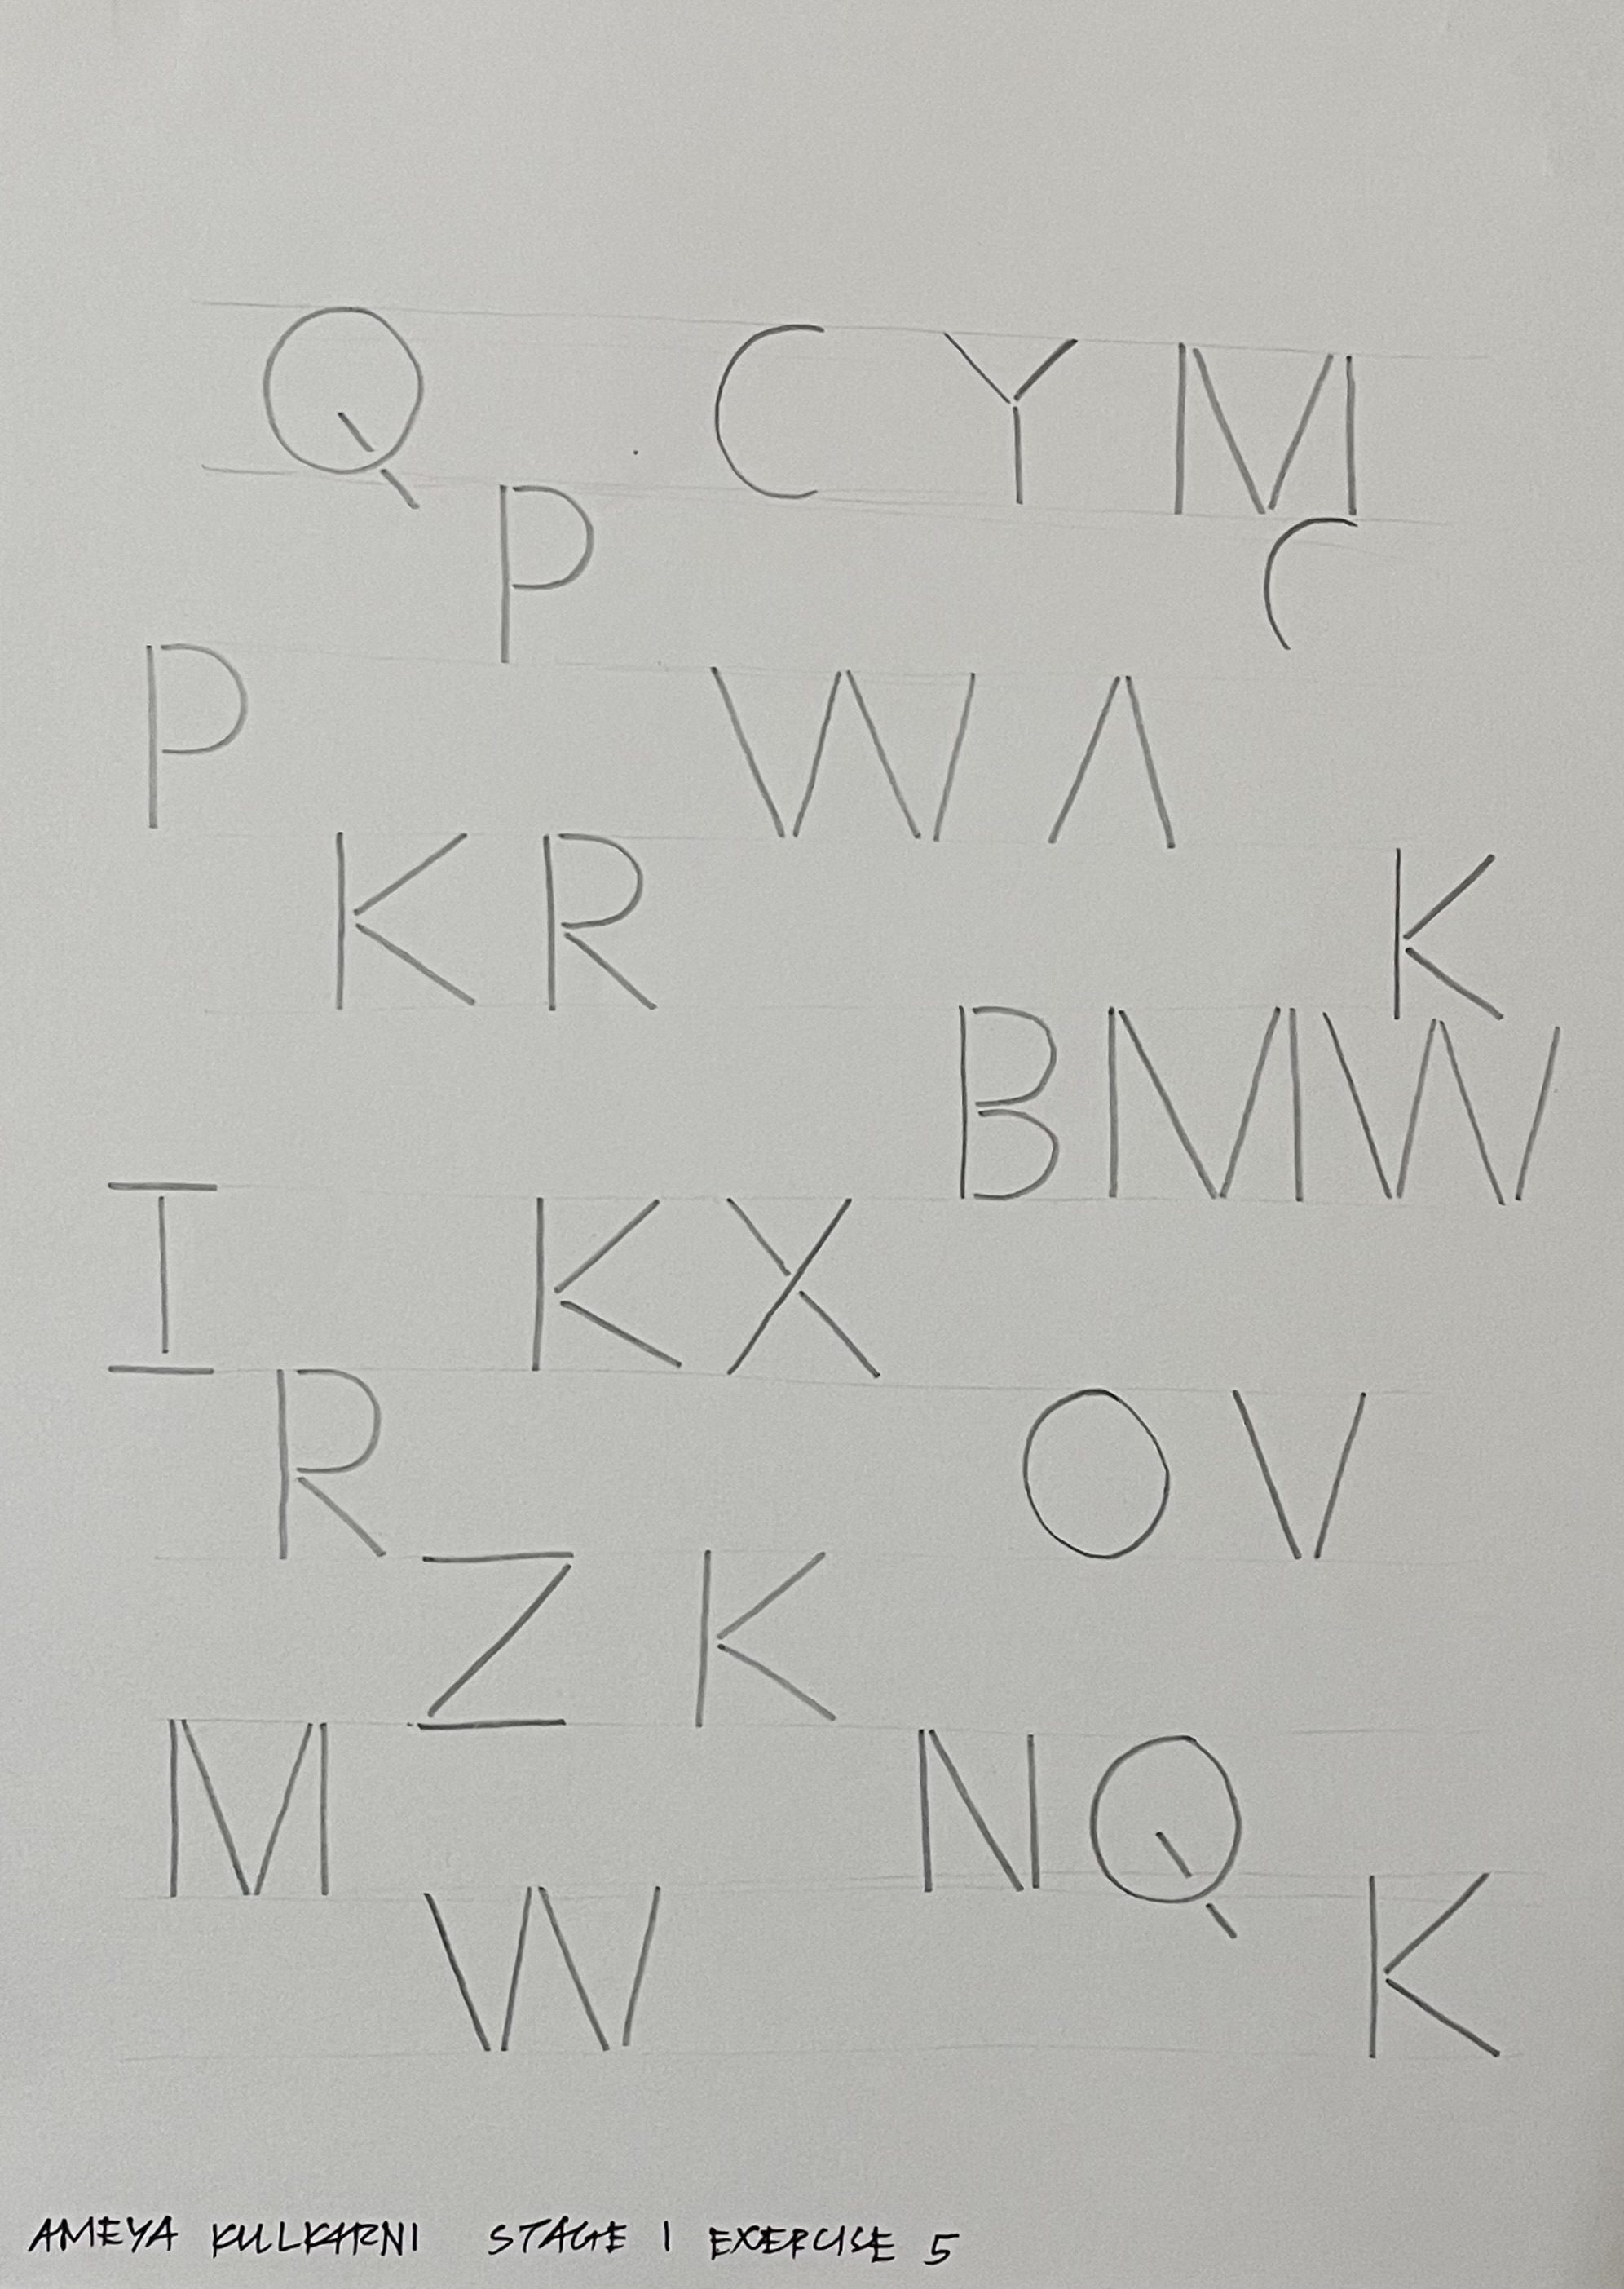 Q C Y M
P C
P W Λ
K R K
B M W
I K X
R O V
Z K
M N Q
W K
AMEYA KULKARNI STAGE 1 EXERCISE 5